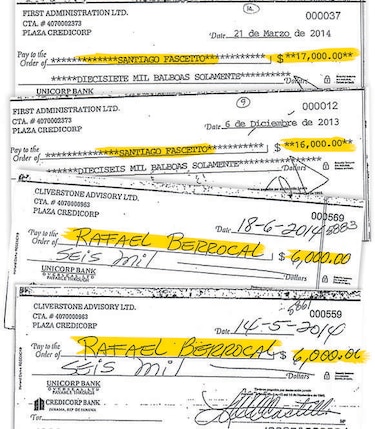 12.
FIRST ADMINISTRATION LTD.
000037
CTA. # 4070002373
PLAZA CREDICORP
Date 21 de Marzo de 2014
Pay to the
Order of *****************SANTIAGO FASCETTO***************** $ **17,000.00**
*******DIECISIETE MIL BALBOAS SOLAMENTE*******
Dollars
UNICORP BANK
9
FIRST ADMINISTRATION LTD.
000012
CTA. # 4070002373
PLAZA CREDICORP
Date 6 de Diciembre de 2013
Pay to the
Order of **************SANTIAGO FASCETTO************** $ **16,000.00**
*******DIECISEIS MIL BALBOAS SOLAMENTE*******
Dollars
CLIVERSTONE ADVISORY LTD.
000569
CTA. # 4070000963
5883
PLAZA CREDICORP
Date 18-6-2014
Pay to the
Order of RAFAEL BERROCAL $ 6,000.00
SEIS mil
Dollars
UNICORP BANK
OVERSEAS LTD
PAYABLE THROUGH
CLIVERSTONE ADVISORY LTD.
000559
CTA. # 4070000963
5861
PLAZA CREDICORP
Date 14-5-2014
Pay to the
Order of RAFAEL BERROCAL $ 6,000.00
SEIS mil
Dollars
UNICORP BANK
OVERSEAS LTD
PAYABLE THROUGH
CREDICORP BANK
PANAMA, REP DE PANAMA
For